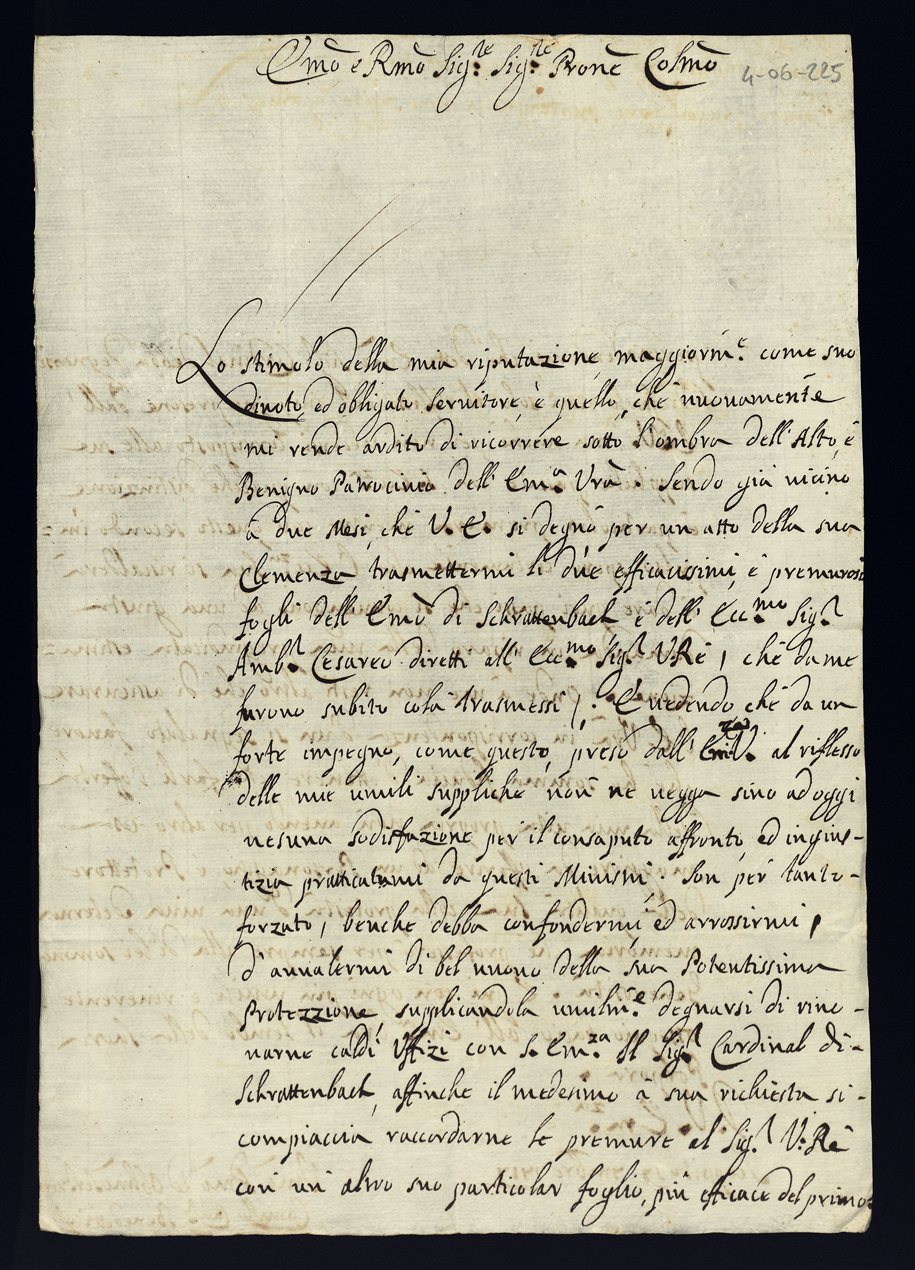 Emõ e Rmõ Sig.re Sig.re Pronẽ Colmõ
4-06-225
Lo stimolo della mia riputazione, maggiorm.e come suo
divoto, ed obligato Servitore, è quello, chè nuovamente
mi rende ardito di ricorrere sotto l'ombra dell'Alto, è
Benigno Patrocinio dell'Em.a Vrã. Sendo già vicino
à due Mesi, chè V. E. si degnò per un atto della sua
Clemenza, trasmettermi li due efficacissimi, è premurosi
fogli dell'Emõ di Schrattenbach, è dell'Ecc.mo Sig.r
Amb.r Cesareo diretti all'Ecc.mo Sig.r VRè, chè da me
furono subito colà trasmessi. E vedendo chè da un
forte impegno, come questo, preso dall' V. al riflesso
delle mie umili suppliche non ne vegga sino ad oggi
nesuna sodisfazione per il consaputo affronto, ed ingius-
tizia pratticatami da questi Ministri. Son per tanto-
forzato, benche debba confondermi, ed arrossirmi,
d'avvalermi di bel nuovo della sua Potentissima
Protezzione, supplicandola umilm.e degnarsi di rino-
varne caldi Uffizi con S. Em.za Il Sig.r Cardinal di-
Schrattenbach, affinche il medesimo à sua richiesta si-
compiaccia raccordarne le premure al Sig.r V.Rè
con un altro suo particolar foglio, più efficace del primo: